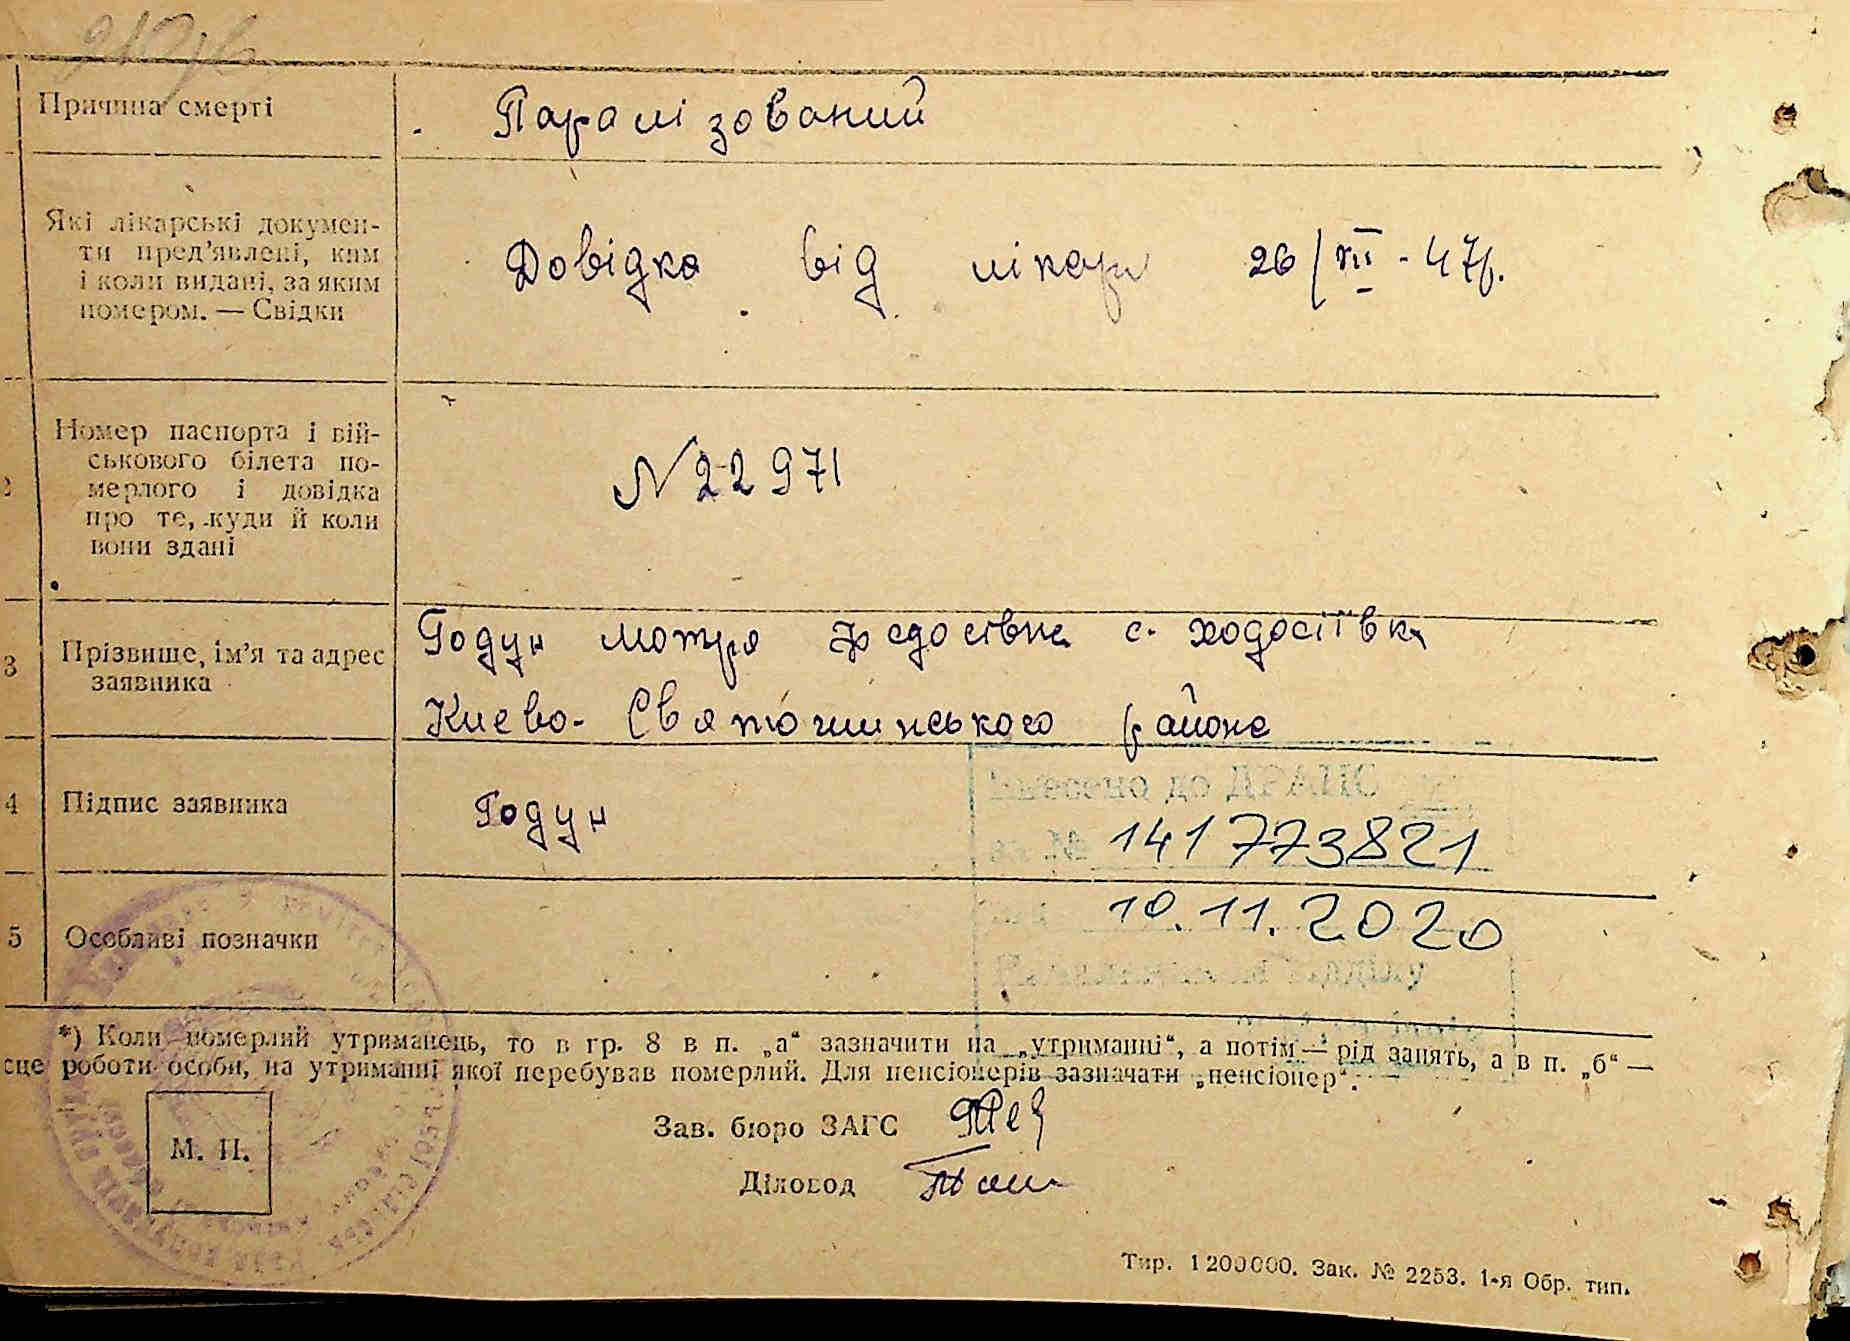 Причина смерті
Паралізований
Які лікарські докумен-
ти пред'явлені, ким
і коли видані, за яким
номером. — Свідки
Довідка від лікаря 26/XII - 47р.
Номер паспорта і вій-
ськового білета по-
мерлого і довідка
про те, куди й коли
вони здані
N 22971
3
Прізвище, ім'я та адрес
заявника
Годун Мотря Федосівна с. Ходосіївка
Києво-Святошинського района
4
Підпис заявника
Годун
Внесено до ДРАЦС
за № 141773821
10.11.2020
5
Особливі позначки
відділу
*) Коли померлий утриманець, то в гр. 8 в п. „а“ зазначити на „утриманні“, а потім — рід занять, а в п. „б“ —
сце роботи особи, на утриманні якої перебував померлий. Для пенсіонерів зазначати „пенсіонер“.
М. П.
Зав. бюро ЗАГС
Діловод
Тир. 1200000. Зак. № 2253. 1-я Обр. тип.